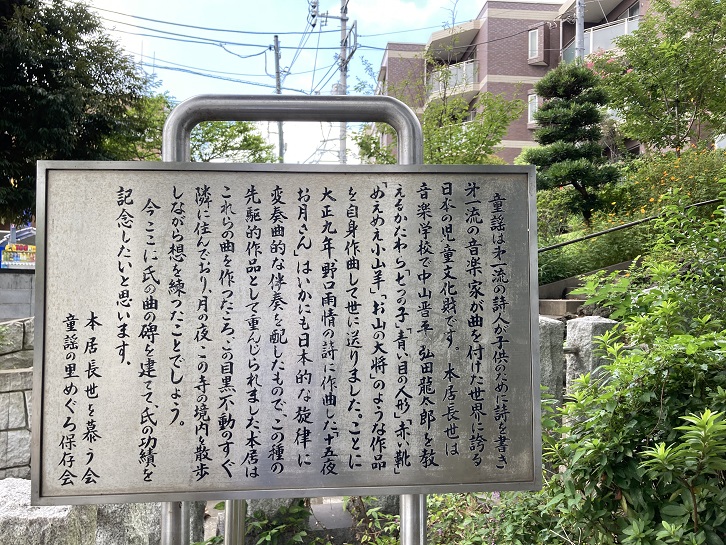 童謡は才一流の詩人が子供のために詩を書き
才一流の音楽家が曲を付けた世界に誇る
日本の児童文化財です。本居長世は
音楽学校で中山晋平 弘田龍太郎を教
えるかたわら「七つの子」「青い目の人形」「赤い靴」
「めえめえ小山羊」「お山の大将」のような作品
を自身作曲して世に送りました。ことに
大正九年野口雨情の詩に作曲した「十五夜
お月さん」はいかにも日本的な旋律に
変奏曲的な伴奏を配したもので、この種の
先駆的作品として重んじられました。本居は
これらの曲を作ったころ、この目黒不動のすぐ
隣に住んでおり、月の夜、この寺の境内を散歩
しながら想を練ったことでしょう。
今ここに氏の曲の碑を建て、氏の功績を
記念したいと思います。
本居長世を慕う会
童謡の里めぐろ保存会